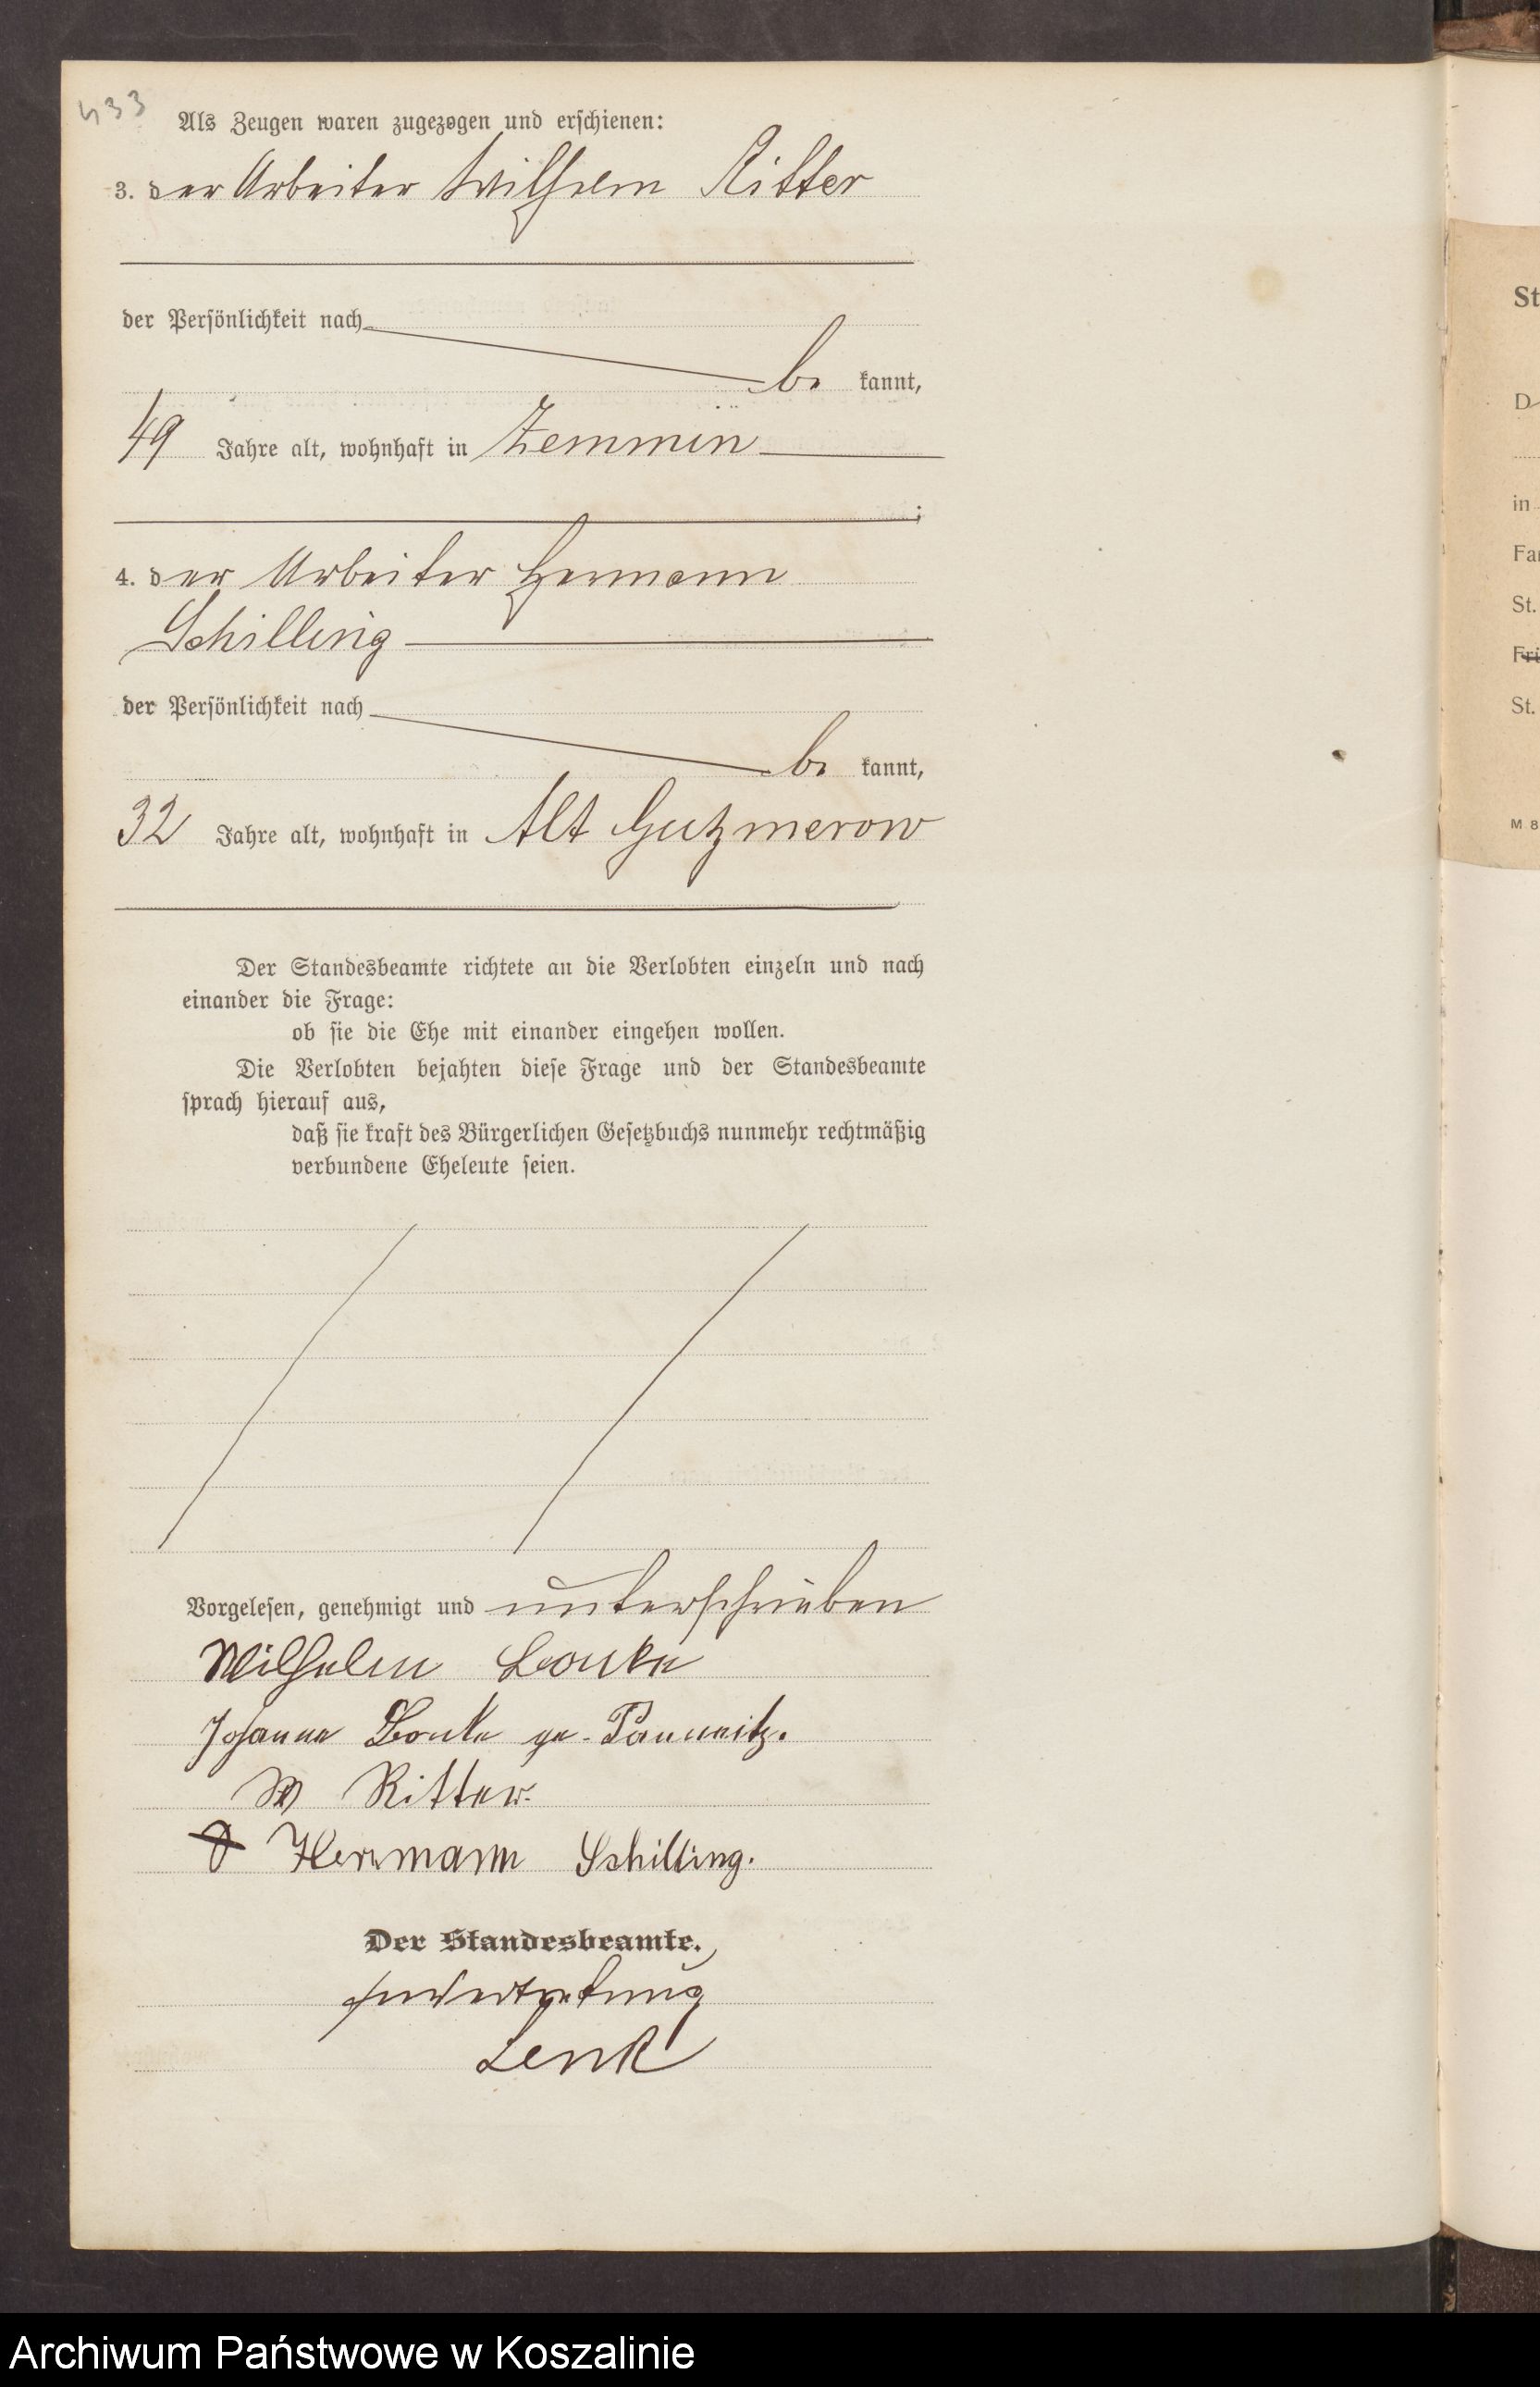 433
Als Zeugen waren zugezogen und erschienen:
3. der Arbeiter Wilhelm Ritter
der Persönlichkeit nach
be kannt,
49 Jahre alt, wohnhaft in Zemmin
;
4. der Arbeiter Hermann
Schilling
der Persönlichkeit nach
be kannt,
32 Jahre alt, wohnhaft in Alt Gutzmerow
Der Standesbeamte richtete an die Verlobten einzeln und nach
einander die Frage:
ob sie die Ehe mit einander eingehen wollen.
Die Verlobten bejahten diese Frage und der Standesbeamte
sprach hierauf aus,
daß sie kraft des Bürgerlichen Gesetzbuchs nunmehr rechtmäßig
verbundene Eheleute seien.
Vorgelesen, genehmigt und unterschrieben
Wilhelm Bonke
Johanna Bonke ge. Pannwitz.
W Ritter.
Herrmann Schilling.
Der Standesbeamte.
In Vertretung
Lenk
St
D
in
Fa
St.
Fri
St.
M 8
Archiwum Państwowe w Koszalinie